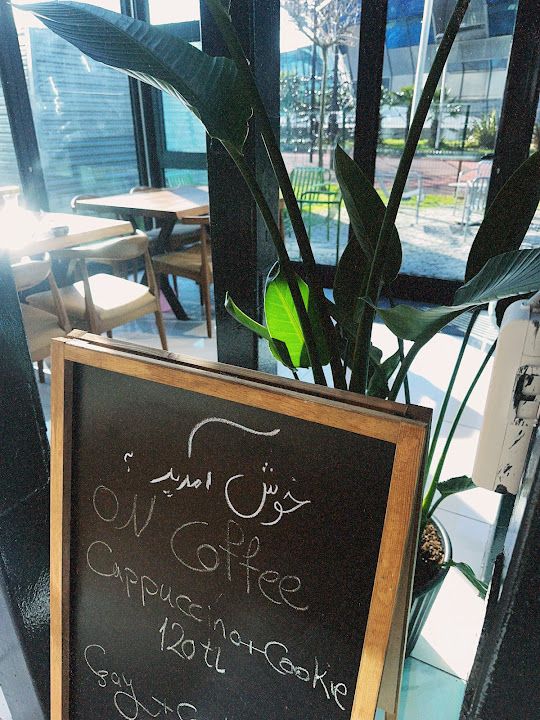 خوش امدید ؟
ON Coffee
Cappuccino+Cookie
120tl
Çay +